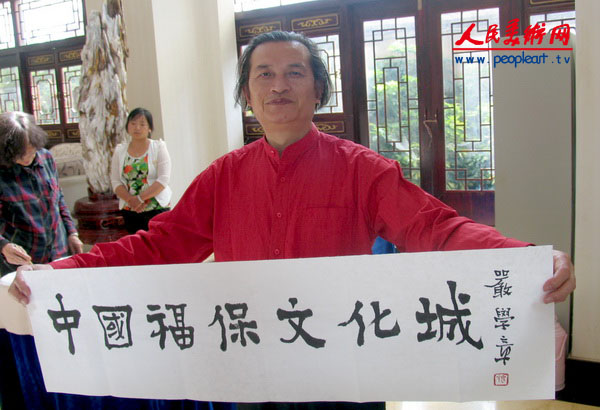 人民美術网
www.peopleart.tv
中國福保文化城
嚴學章